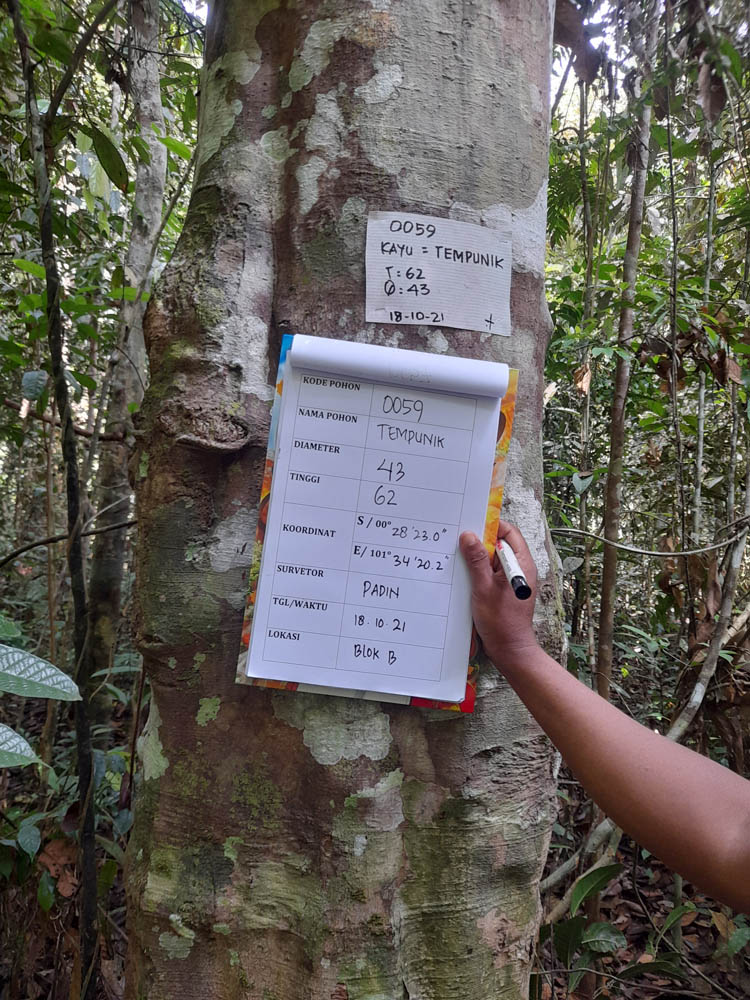 0059
KAYU = TEMPUNIK
T: 62
Ø: 43
18-10-21
KODE POHON 0059
NAMA POHON TEMPUNIK
DIAMETER 43
TINGGI 62
KOORDINAT S / 00° 28 '23.0"
E/ 101° 34 '20.2"
SURVETOR PADIN
TGL/WAKTU 18.10.21
LOKASI BLOK B